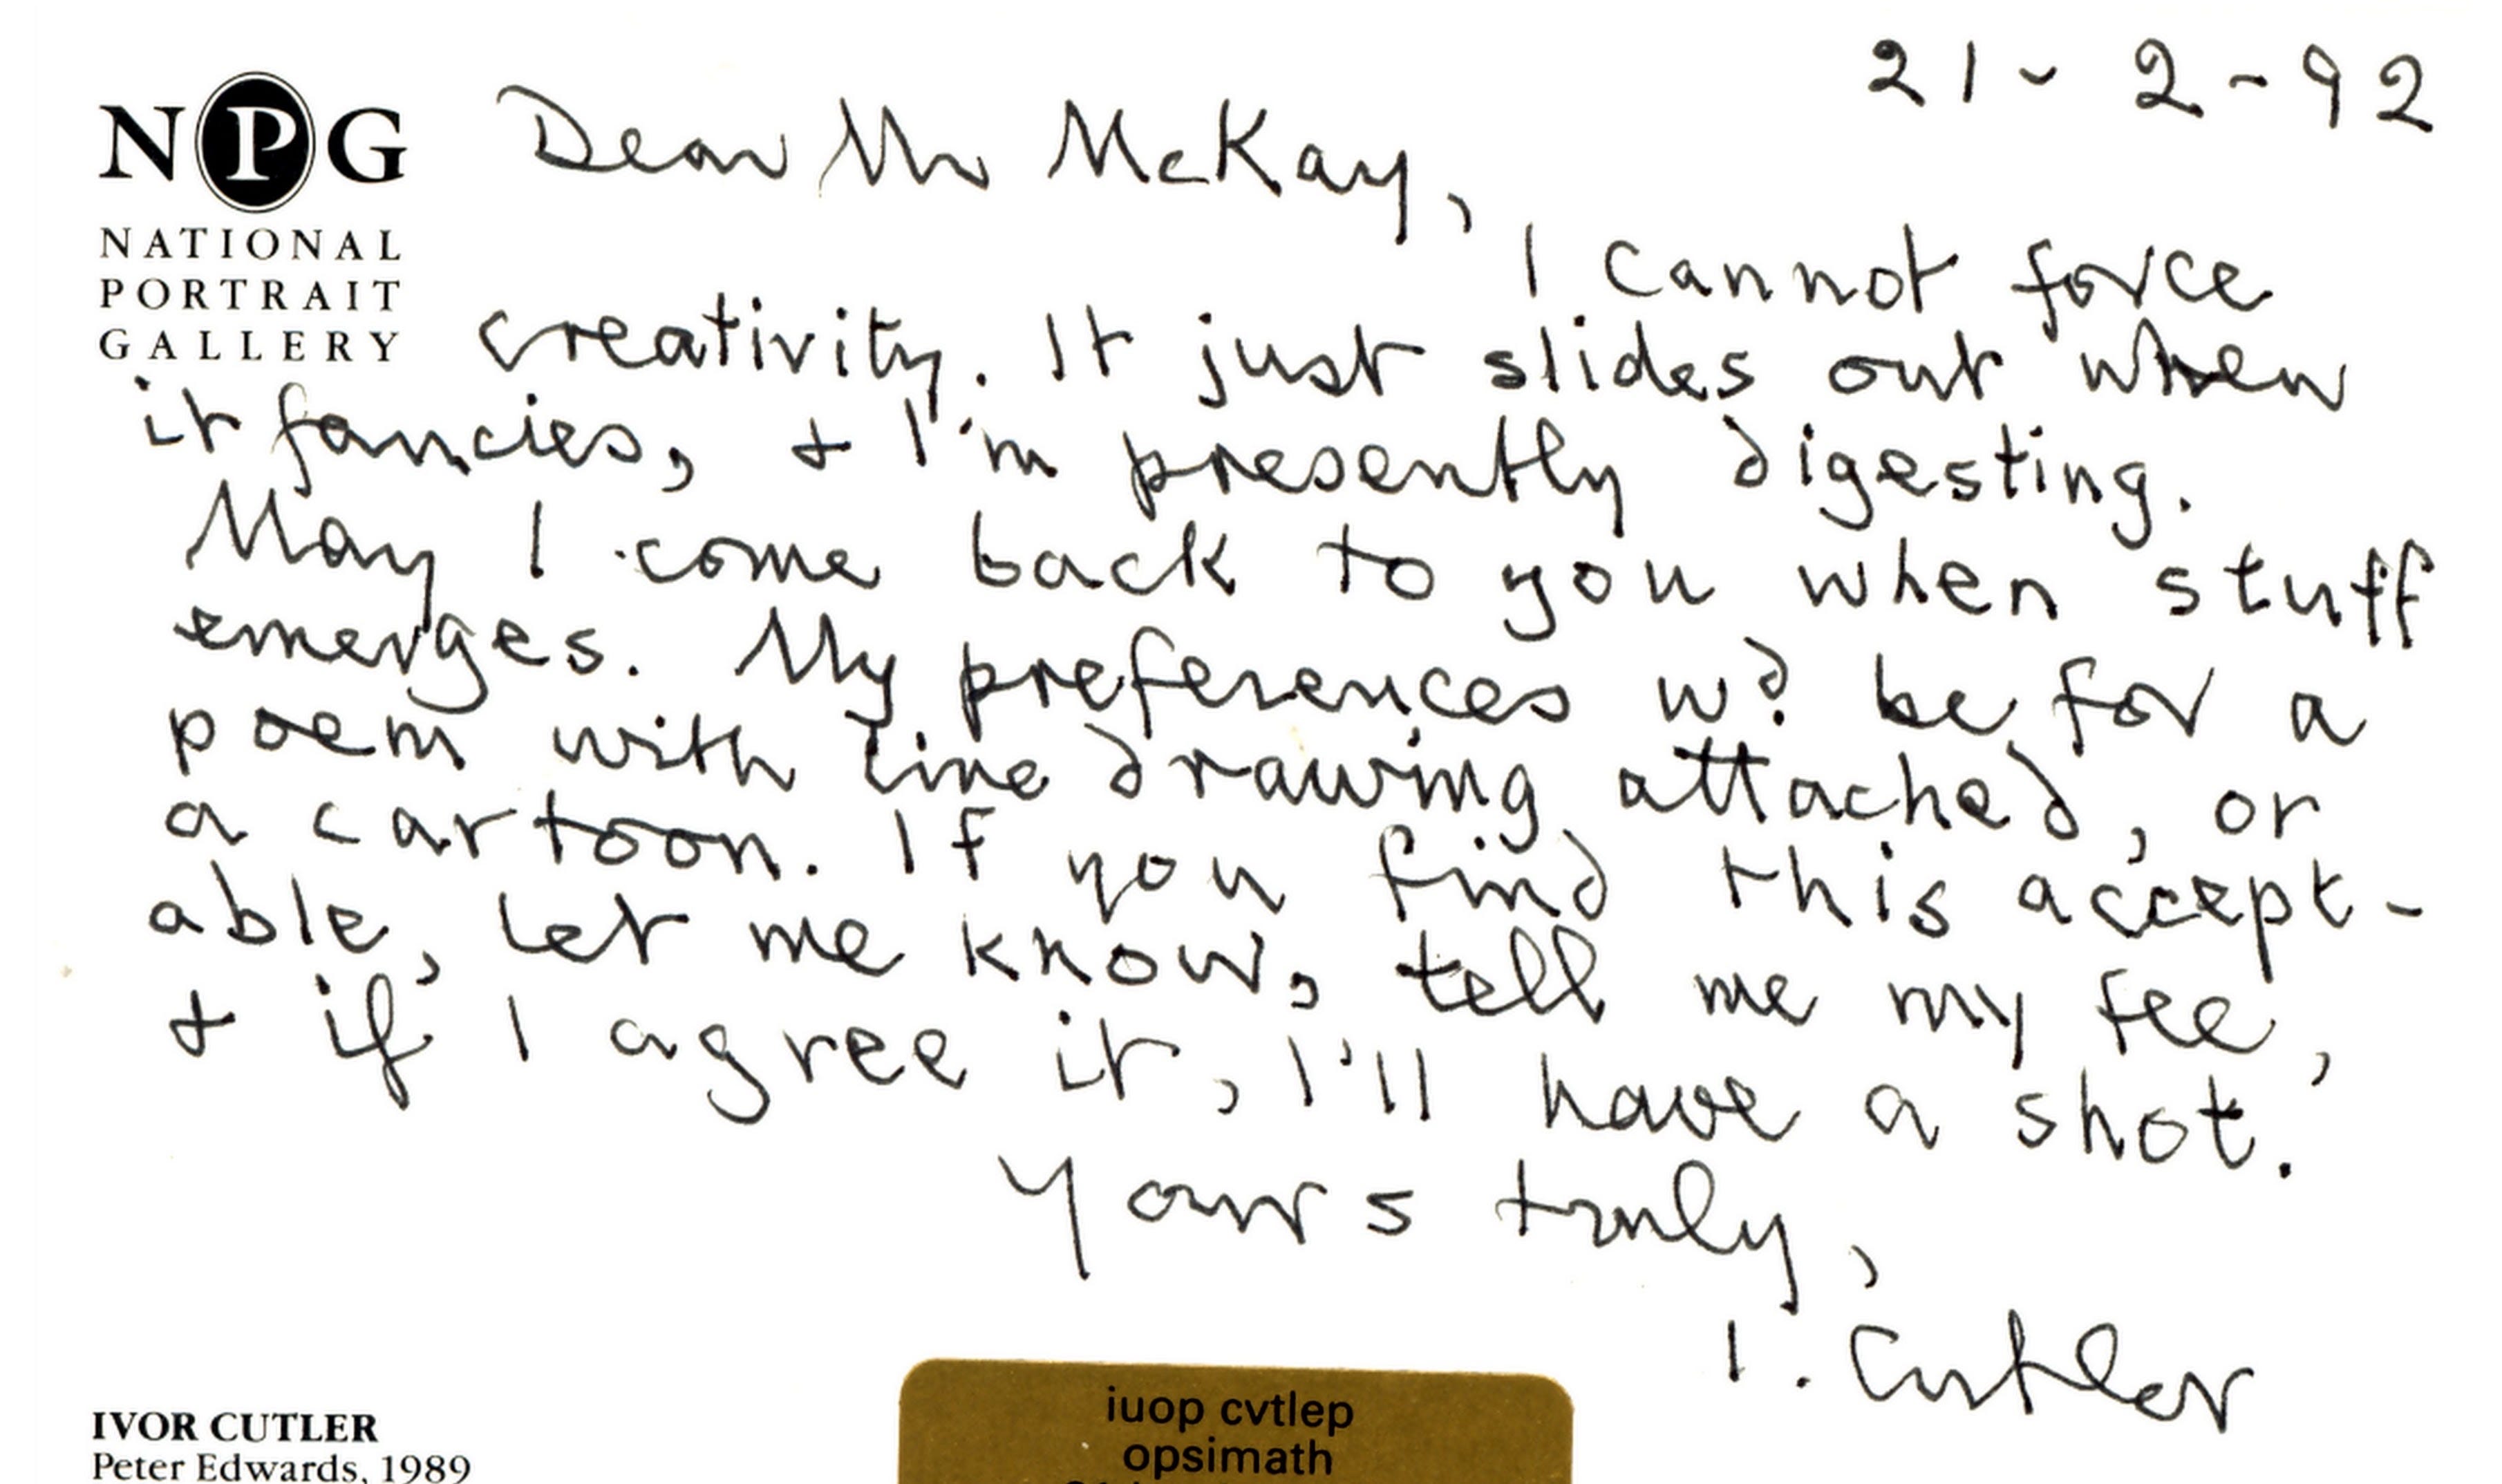 21-2-92
NPG
NATIONAL
PORTRAIT
GALLERY
Dear Mr McKay,
I cannot force
creativity. It just slides out when
it fancies, & I'm presently digesting.
May I come back to you when stuff
emerges. My preferences wd be for a
poem with line drawing attached, or
a cartoon. If you find this accept-
able, let me know, tell me my fee,
& if I agree it, I'll have a shot.
Yours truly,
I. Cutler
IVOR CUTLER
Peter Edwards, 1989
iuop cvtlep
opsimath